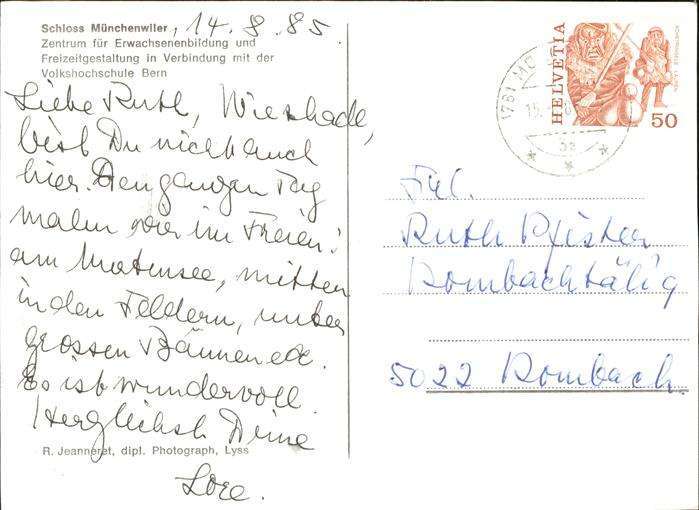 Schloss Münchenwiler, 14.8.85.
Zentrum für Erwachsenenbildung und
Freizeitgestaltung in Verbindung mit der
Volkshochschule Bern
Liebe Ruth, Wie schade,
bist Du nicht auch
hier. Den ganzen Tag
malen wir im Freien:
am Murtensee, mitten
in den Feldern, unter
grossen Bäumen etc.
Es ist wundervoll.
Herzlichst Deine
R. Jeanneret, dipl. Photograph, Lyss
Lore.
HELVETIA
50
1781
15.
Frl.
Ruth Pfister
Rombachtälig
5022 Rombach.